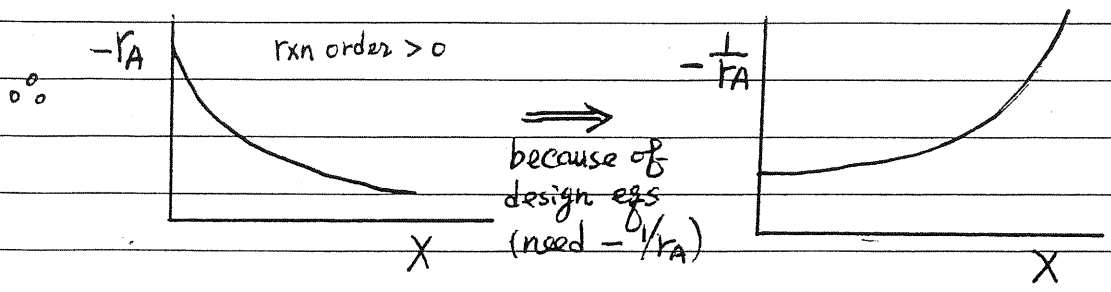 -rA
rxn order > 0
∴
X
⟹
because of
design eqs
(need -1/rA)
-1/rA
X